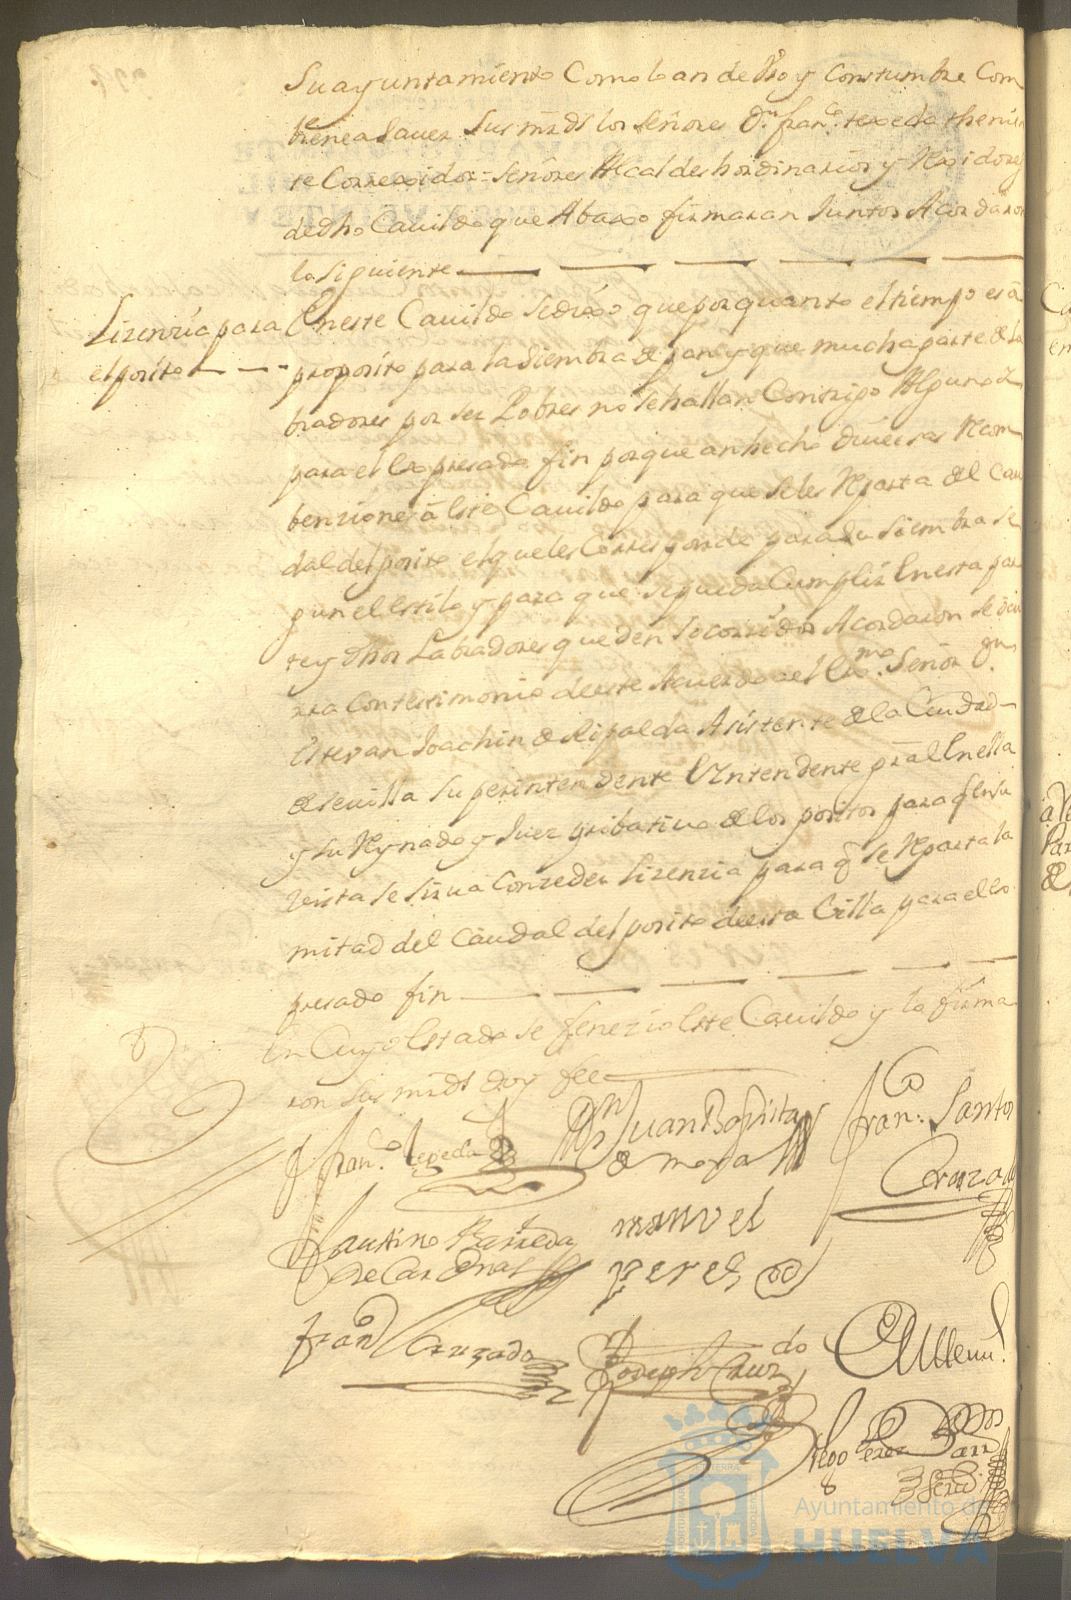 Su ayuntamiento Como lo an de Vso y Constumbre Com
biene a Saver Sus mrds los señores Dn. franco. texeda thenien
te Correxidor = Señores Alcaldes hordinarios y Rexidores
de dho Cauildo que Abaxo firmaran Juntos Acordaron
lo siguiente
Lizenzia para
el posito
En este Cauildo se dixo que por quanto el tiempo es a
proposito para la Siembra de pan y que mucha parte de la
bradores por ser Pobres no se hallan Con trigo Alguno
para el Expresado fin porque an hecho diuersas Recom
benziones a Este Cauildo para que se les Reparta del Cau
dal del posito el que les Corresponde para su siembra se
gun el estilo y para que se pueda Cumplir En esta par
te y dhos Labradores queden Socorridos Acordaron se ocu
rra Con testimonio de este Acuerdo al Exmo. Señor Dn.
Estevan Joachin de Ripalda Asistente de la Ciudad
de Seuilla Superintendente E Yntendente gral En ella
y su Reynado y Juez pribatiuo de los positos para q en su
vista se sirua Conzeder Lizenzia para q se Reparta la
mitad del Caudal del posito de esta Villa para el ex
presado fin
En Cuyo Estado se fenezio Este Cauildo y lo firma
ron Sus mrds doy fee
franco. texeda
Dn Juan Baptista
de mora
Franco. Santos
Cruzado
Faustino Barreda
de Cardenas
manuel
peres
Franco Cruzado
Joseph Cruzdo
Diego Perez
Ayuntamiento de
HUELVA